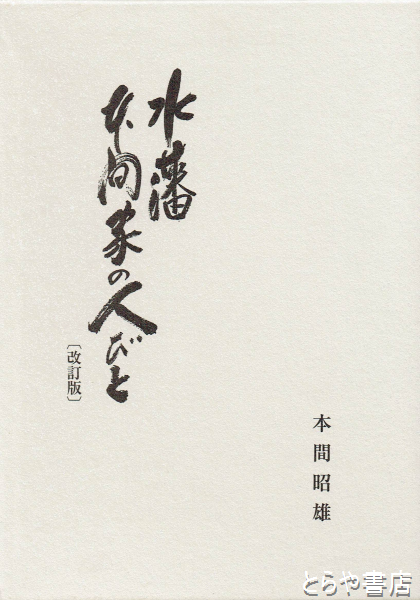 水藩
本間家の人びと
〔改訂版〕
本間昭雄
とらや書店